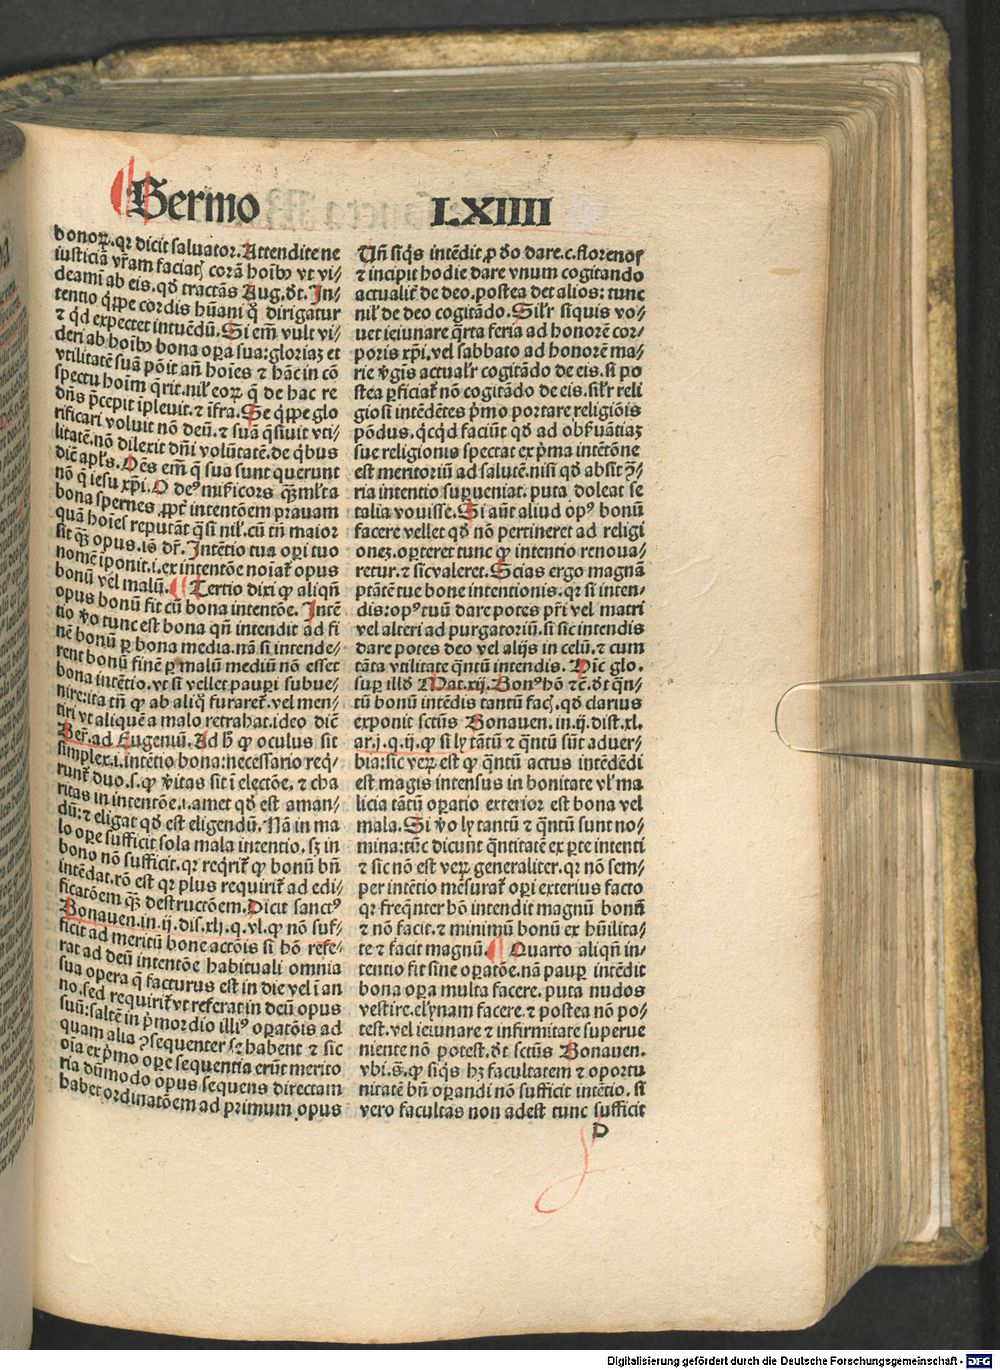 Sermo LXIIII
bonoꝝ. qꝛ dicit saluator. Attendite ne
iusticiā vr̄am faciatꝭ corā hoībꝰ vt vi⸗
deamī ab eis. qď tractās Aug. dt̄. In⸗
tentio qͥppe cordis hūani qͦ dirigatur
⁊ qͥd expectet intuēdū. Si em̄ vult vi⸗
deri ab hoībꝰ bona oꝑa sua: gloriaꝫ et
vtilitatē suā pōit añ hoīes ⁊ hāc in cō
spectu hoīm q̄rit. nil̓ eoꝝ q̄ de hac re
dn̄s p̄cepit īpleuit. ⁊ īfra. Se qͥppe glo
rificari voluit nō deū. ⁊ suā q̄siuit vti⸗
litatē. nō dilexit dn̄i volūtatē. de qͥbus
dic̄ apl̓s. Oēs em̄ q̄ sua sunt querunt
nō q̄ iesu xp̄i. O deꝰ mīicors qͣꝫ ml̓ta
bona spernes ꝓpt̓ intentōem prauam
quā hoīes reputāt qͣsi nil̓. cū tn̄ maior
sit qͣꝫ opus. iō dr̄. Intētio tua oꝑi tuo
nomē īponit. i. ex intentōe noīat̓ opus
bonū vel malū. ¶ Tertio dixi ꝙ aliqn̄
opus bonū fit cū bona intentōe. Intē
tio ꝟo tunc est bona qn̄ intendit ad fi
nē bonū ꝑ bona media. nā si intende⸗
rent bonū finē ꝑ malū mediū nō esset
bona intētio. vt si vellet pauꝑi subue⸗
nire: ita tn̄ ꝙ ab aliqͦ furaret̓. vel men⸗
tiri vt aliquē a malo retrahat. ideo dic̄
Ber̄. ad Eugeniū. Ad h̄ ꝙ oculus sit
simplex. i. intētio bona: necessario reqͥ⸗
runt̓ duo. s. ꝙ ꝟitas sit ī electōe. ⁊ cha
ritas in intentōe. i. amet qď est aman⸗
dū: ⁊ eligat qď est eligendū. Nā in ma
lo oꝑe sufficit sola mala intentio. sꝫ in
bono nō sufficit. qꝛ reqͥrit̓ ꝙ bonū bn̄
intēdat. rō est qꝛ plus requirit̓ ad edi⸗
ficatōem qͣꝫ destructōem. Dicit sanctꝰ
Bonauen. in. ij. dis. xlj. q. vl̓. ꝙ nō suf⸗
ficit ad meritū bone actōis si hō refe⸗
rat ad deū intentōe habituali omnia
sua opera q̄ facturus est in die vel ī an
no. sed requirit̓ vt referat in deū opus
suū: saltē in pͥmordio illiꝰ oꝑatōis ad
quam alia ꝯsequenter se habent ⁊ sic
oīa ex pͥmo oꝑe sequentia erūt merito
ria dūmodo opus sequens directam
habet ordinatōem ad primum opus
Vn̄ siqͥs intēdit ꝓ ďo dare. c. florenos
⁊ incipit hodie dare vnum cogitando
actualit̓ de deo. postea det alios: tunc
nil̓ de deo cogitādo. Sil̓r siquis vo⸗
uet ieiunare qͣrta feria ad honorē cor⸗
poris xp̄i. vel sabbato ad honorē ma⸗
rie ꝟgis actual̓r cogitādo de eis. si po
stea ꝑficiat̓ nō cogitādo de eis. sil̓r reli
giosi intēdētes pͥmo portare religiōis
pōdus. qͥcqͥd faciūt qď ad obẜuātiaꝫ
sue religionis spectat ex pͥma intētōne
est meritoriū ad salutē. nisi qď absit ꝯ̄⸗
ria intentio suꝑueniat. puta doleat se
talia vouisse. Si aūt aliud opꝰ bonū
facere vellet qď nō pertineret ad religi
onez. oꝑteret tunc ꝙ intentio renoua⸗
retur. ⁊ sic valeret. Scias ergo magnā
ptātē tue bone intentionis. qꝛ si inten⸗
dis: opꝰ tuū dare potes pr̄i vel matri
vel alteri ad purgatoriū. si sic intendis
dare potes deo vel alijs in celū. ⁊ cum
tāta vtilitate qͣntū intendis. Dic̄ glo.
suꝑ illď Mat. xij. Bonꝰ hō ⁊c̄. dt̄ qͣn⸗
tū bonū intēdis tantū facꝭ. qď clarius
exponit sctūs Bonauen. in. ij. dist. xl.
ar. j. q. ij. ꝙ si ly tātū ⁊ qͣntū sūt aduer⸗
bia: sic veꝝ est ꝙ qͣntū actus intēdēdi
est magis intensus in bonitate vl̓ ma
licia tātū oꝑatio exterior est bona vel
mala. Si ꝟo ly tantū ⁊ qͣntū sunt no⸗
mina: tūc dicunt qͣntitatē ex ꝑte intenti
⁊ sic nō est veꝝ generaliter. qꝛ nō sem⸗
per intētio mēsurat̓ oꝑi exterius facto
qꝛ freqͣnter hō intendit magnū bonū
⁊ nō facit. ⁊ minimū bonū ex hūilita⸗
te ⁊ facit magnū. ¶ Quarto aliqn̄ in⸗
tentio fit sine oꝑatōe. nā pauꝑ intēdit
bona oꝑa multa facere. puta nudos
vestire. elynam facere. ⁊ postea nō po⸗
test. vel ieiunare ⁊ infirmitate superue
niente nō potest. dt̄ sctūs Bonauen.
vbi. s̄. ꝙ siqͥs hꝫ facultatem ⁊ oportu
nitatē bn̄ oꝑandi nō sufficit intētio. si
vero facultas non adest tunc sufficit
D
Digitalisierung gefördert durch die Deutsche Forschungsgemeinschaft - DFG